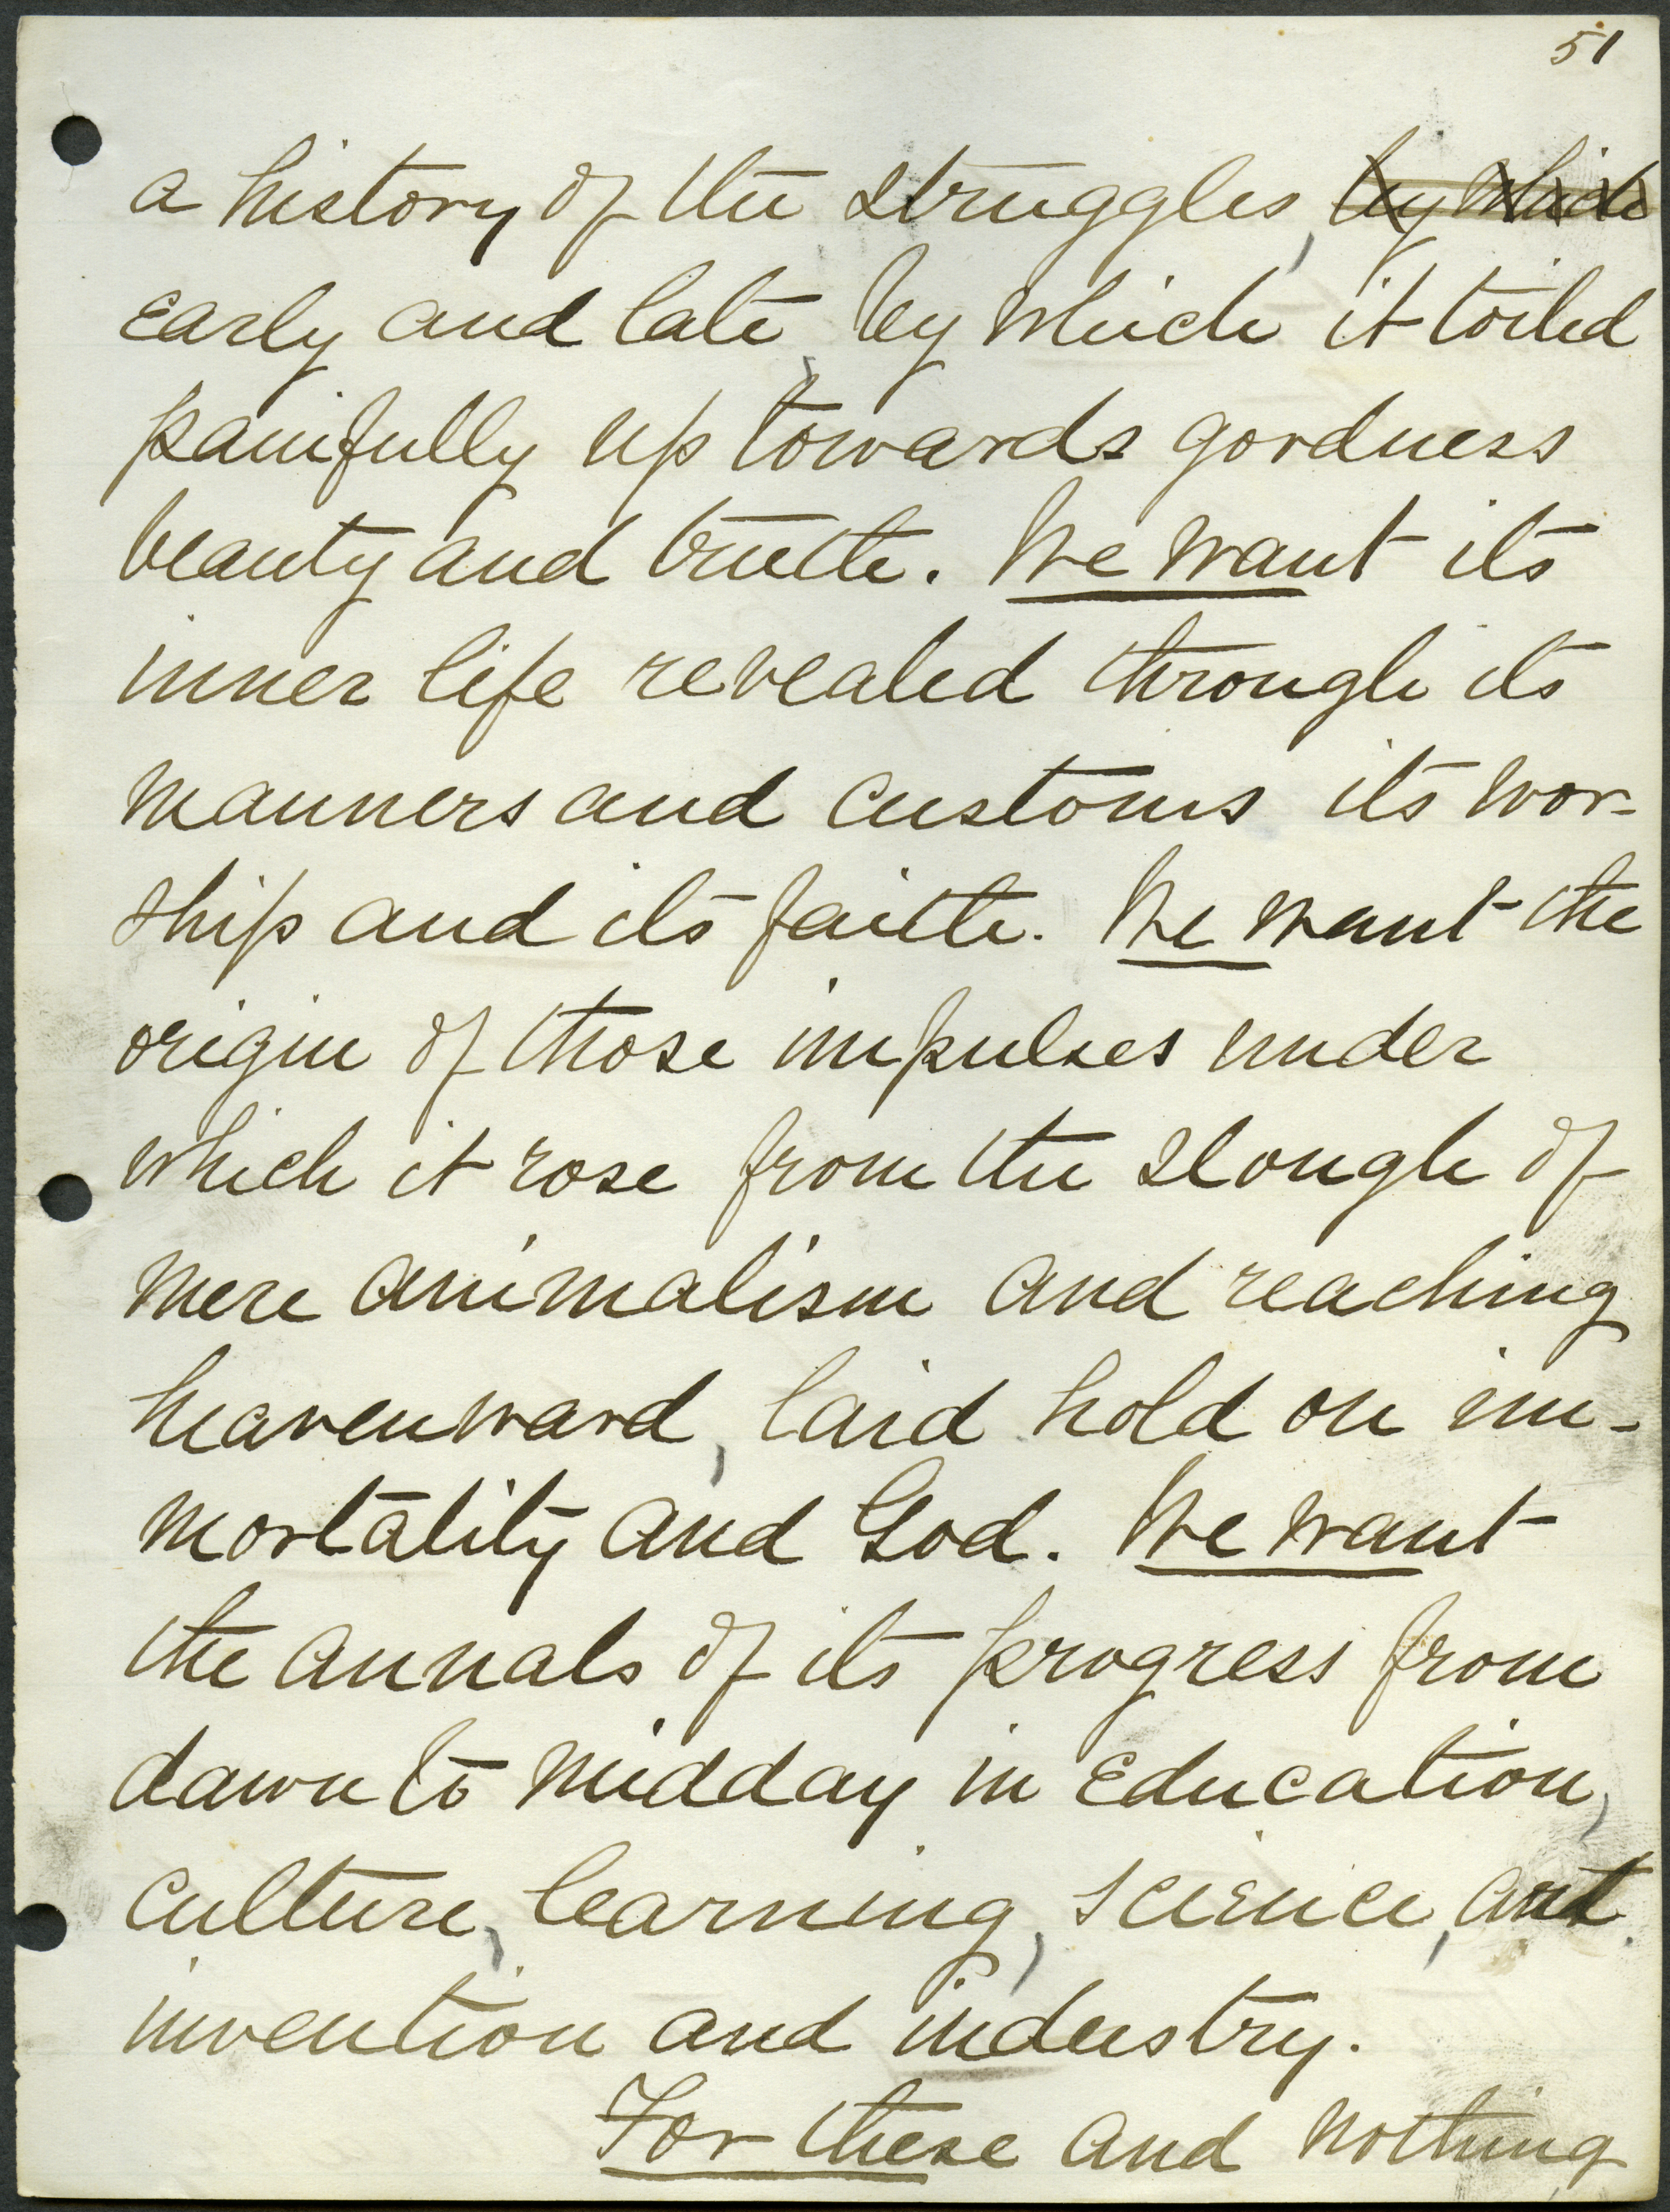 51
a history of the struggles, by which
early and late, by which it toiled
painfully up towards goodness
beauty and truth. We want its
inner life revealed through its
manners and customs its wor-
ship and its faith. We want the
origin of those impulses under
which it rose from the slough of
mere animalism and reaching
heavenward, laid hold on im-
mortality and God. We want
the annals of its progress from
dawn to midday in Education,
culture, learning, science, art
invention and industry.
For these and nothing